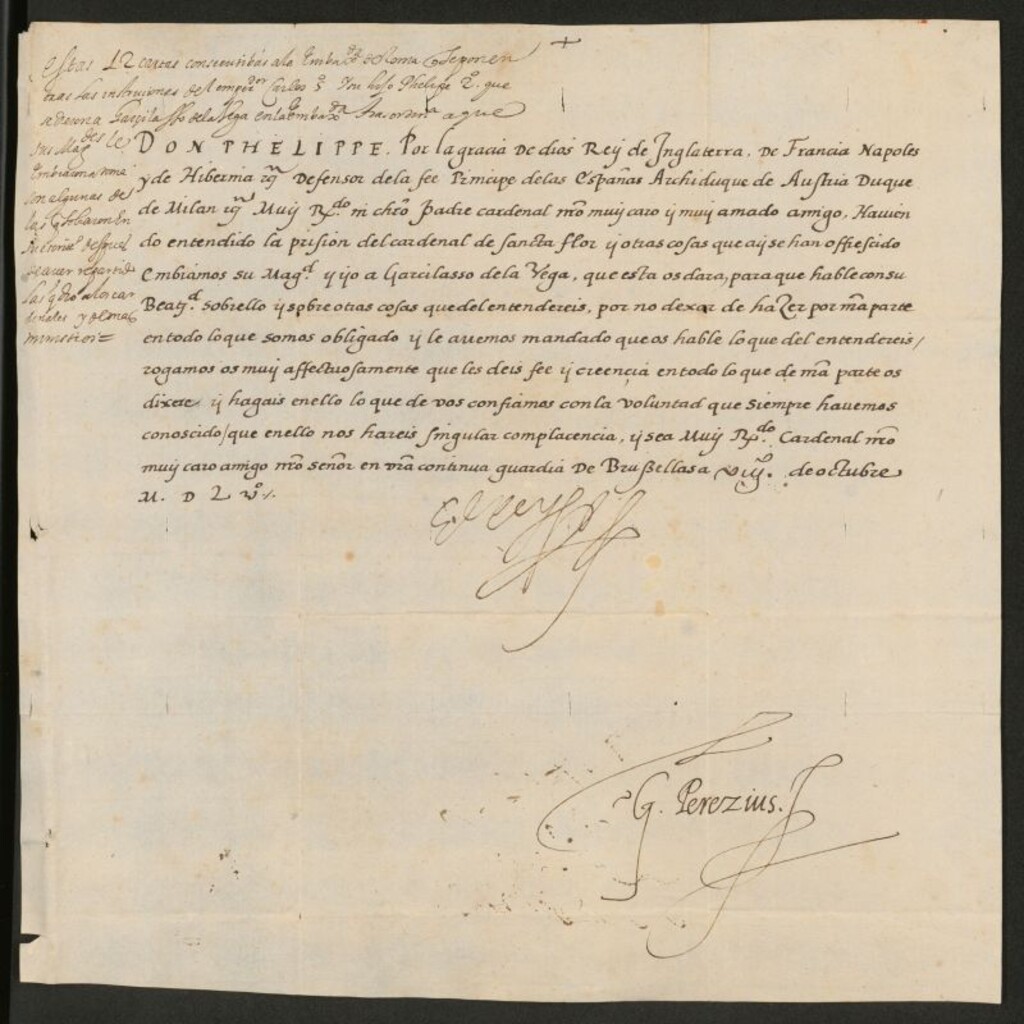 +
estas 12 cartas consecutibas a la Emba.da de Roma se ponen
tras las instruciones del emp.or Carlos 5 y su hijo Phelipe 2.o que
Garcilasso de la Vega en la Emba.da a que
sus Mag.des le
Embiaron
con algunas de
las
despues
de aver
las
denales y demas
ministros=
DON PHELIPPE. Por la gracia De dios Rey de Inglaterra. De Francia Napoles
y de Hibernia rq̃ Defensor dela fee Principe delas Españas Archiduque de Austria Duque
de Milan rq̃ Muy R.do in chr̃o Padre cardenal nr̃o muy caro y muy amado amigo, Havien
do entendido la prision del cardenal de sancta flor y otras cosas que ay se han offrescido
Embiamos su Mag.d y yo a Garcilasso dela Vega, que esta os dara, para que hable con su
Beat.d sobrello y sobre otras cosas que del entendereis, por no dexar de hazer por mr̃a parte
en todo lo que somos obligado y le avemos mandado que os hable lo que del entendereis/
rogamos os muy affectuosamente que les deis fee y creencia en todo lo que de mr̃a parte os
dixere y hagais en ello lo que de vos confiamos con la voluntad que siempre havemos
conoscido/que en ello nos hareis singular complacencia, y sea Muy R.do Cardenal nr̃o
muy caro amigo nr̃o señor en vr̃a continua guardia De Brussellas a viij. de octubre
M. D L v.o
El Rey
G. Perezius.